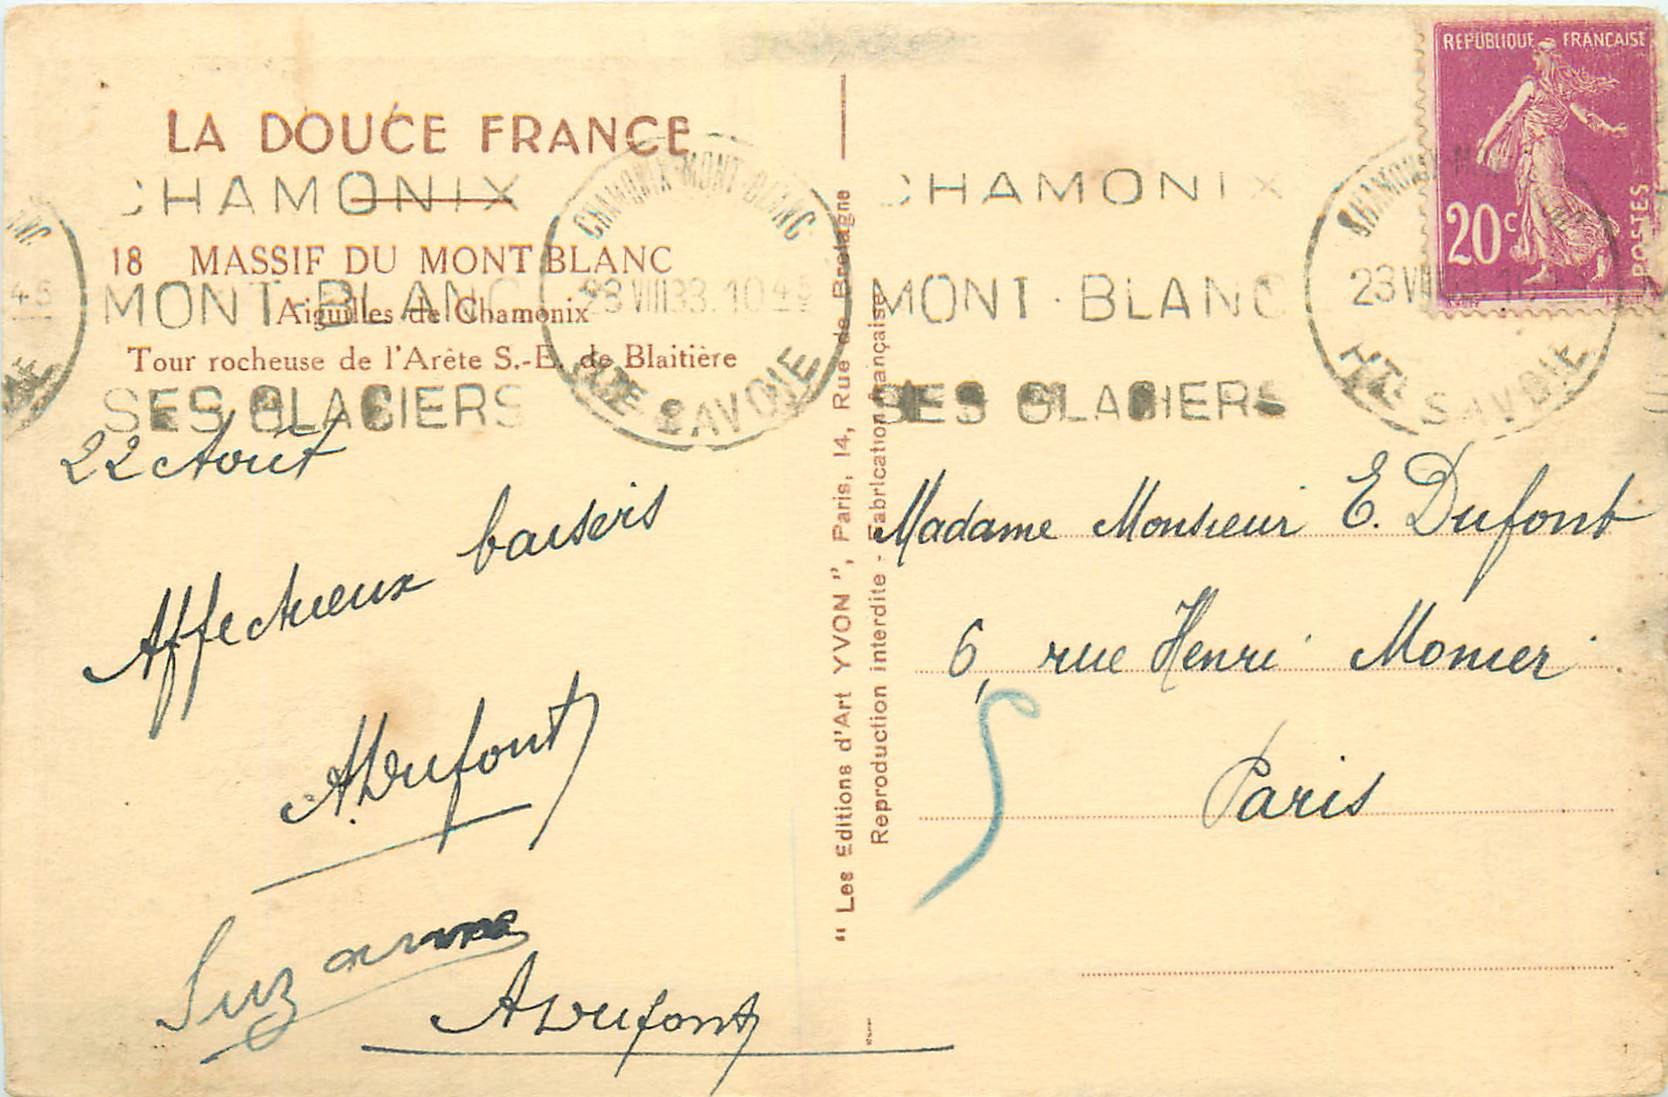 LA DOUCE FRANCE
18 MASSIF DU MONT BLANC
Aiguilles de Chamonix
Tour rocheuse de l'Arête S.-E. de Blaitière
CHAMONIX
MONT-BLANC
SES GLACIERS
CHAMONIX-MONT-BLANC
23 VIII 33. 10 45
HTE SAVOIE
22 Août
Affectueux baisers
ADufont
Suzanne
ADufont
" Les Editions d'Art YVON ", Paris, 14, Rue de Bretagne
Reproduction interdite - Fabrication française
CHAMONIX
MONT-BLANC
SES GLACIERS
HTE SAVOIE
REPUBLIQUE FRANCAISE
20c
POSTES
Madame Monsieur E. Dufont
6, rue Henri Monier
Paris